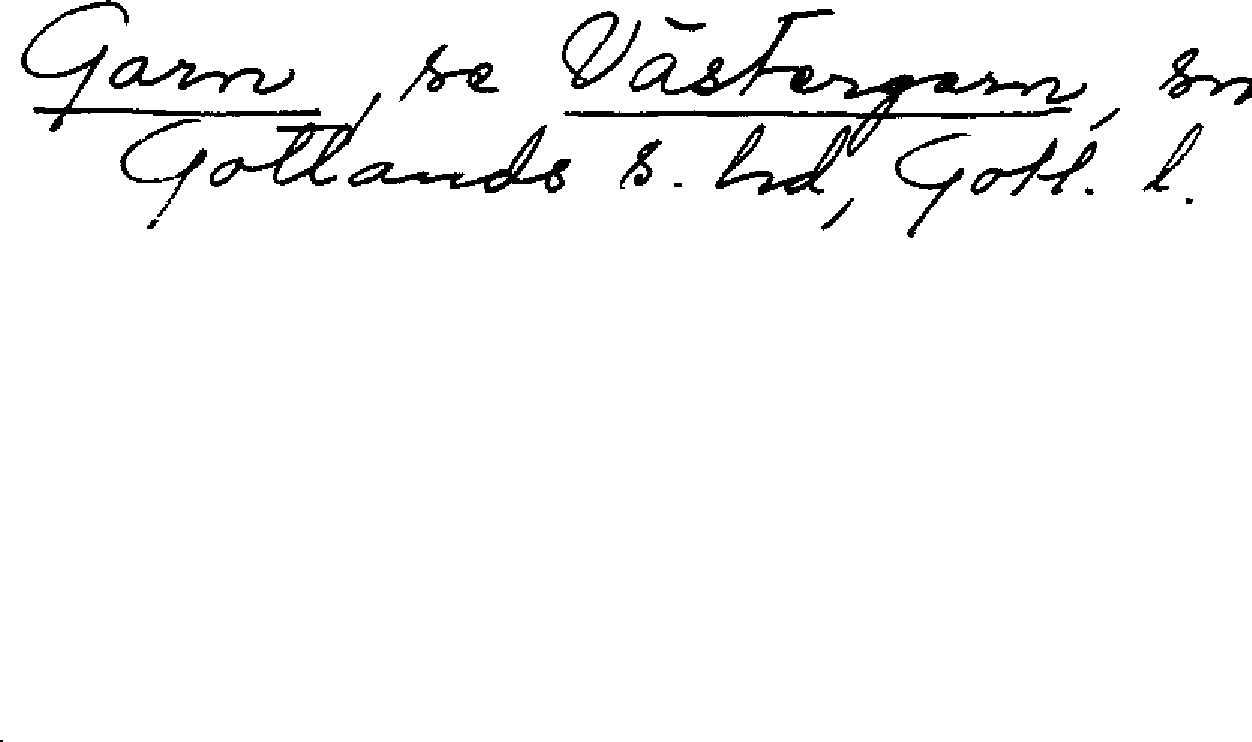 Garn, se Västergarn, sn
Gotlands s. hd, Gotl. l.